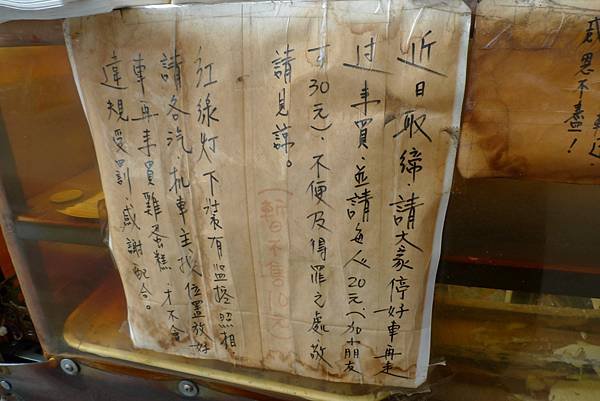 近日取締，請大家停好車再走
过來買，並請每人20元(加小朋友
30元)，不便及得罪之處敬
請見諒。
(暫不售
紅線灯下裝有監控照相，
請各汽、机車主找位置放好
車再來買雞蛋糕，才不會
違規受罰，感謝配合。
感恩不盡！